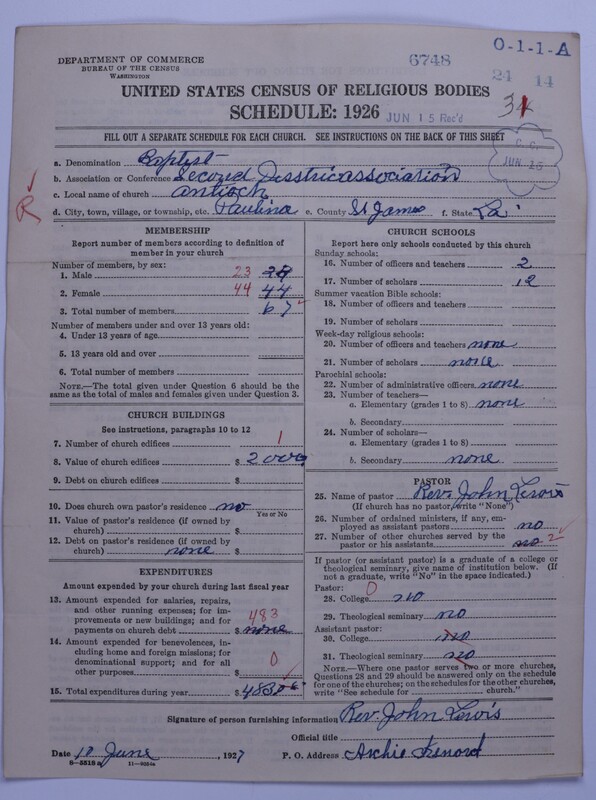 O-1-1-A
DEPARTMENT OF COMMERCE
BUREAU OF THE CENSUS
WASHINGTON
6748
24 14
UNITED STATES CENSUS OF RELIGIOUS BODIES
SCHEDULE: 1926
JUN 15 Rec'd
FILL OUT A SEPARATE SCHEDULE FOR EACH CHURCH. SEE INSTRUCTIONS ON THE BACK OF THIS SHEET
JUN 15
a. Denomination Baptist
b. Association or Conference Second Disstricassociation
c. Local name of church antioch
d. City, town, village, or township, etc. Paulina e. County St James f. State La
R
MEMBERSHIP
Report number of members according to definition of
member in your church
Number of members, by sex:
1. Male 23 28
2. Female 44 44
3. Total number of members 67
Number of members under and over 13 years old:
4. Under 13 years of age
5. 13 years old and over
6. Total number of members
NOTE.—The total given under Question 6 should be the
same as the total of males and females given under Question 3.
CHURCH BUILDINGS
See instructions, paragraphs 10 to 12
7. Number of church edifices 1
8. Value of church edifices $ 2000
9. Debt on church edifices $
10. Does church own pastor's residence no
Yes or No
11. Value of pastor's residence (if owned by
church) $
12. Debt on pastor's residence (if owned by
church) none $
EXPENDITURES
Amount expended by your church during last fiscal year
13. Amount expended for salaries, repairs,
and other running expenses; for im-
provements or new buildings; and for
payments on church debt $ 483 none
14. Amount expended for benevolences, in-
cluding home and foreign missions; for
denominational support; and for all
other purposes $ 0
15. Total expenditures during year $ 483
CHURCH SCHOOLS
Report here only schools conducted by this church
Sunday schools:
16. Number of officers and teachers 2
17. Number of scholars 12
Summer vacation Bible schools:
18. Number of officers and teachers
19. Number of scholars
Week-day religious schools:
20. Number of officers and teachers none
21. Number of scholars none
Parochial schools:
22. Number of administrative officers none
23. Number of teachers—
a. Elementary (grades 1 to 8) none
b. Secondary
24. Number of scholars—
a. Elementary (grades 1 to 8)
b. Secondary none
PASTOR
25. Name of pastor Rev. John Lewis
(If church has no pastor, write "None")
26. Number of ordained ministers, if any, em-
ployed as assistant pastors no
27. Number of other churches served by the
pastor or his assistants no 2
If pastor (or assistant pastor) is a graduate of a college or
theological seminary, give name of institution below. (If
not a graduate, write "No" in the space indicated.)
Pastor:
28. College 0 no
29. Theological seminary no
Assistant pastor:
30. College no
31. Theological seminary no
NOTE.—Where one pastor serves two or more churches,
Questions 28 and 29 should be answered only on the schedule
for one of the churches; on the schedules for the other churches,
write "See schedule for church."
Signature of person furnishing information Rev. John Lewis
Official title
Date 10 June, 1927 P. O. Address Archie
8-5518 a 11-9024a